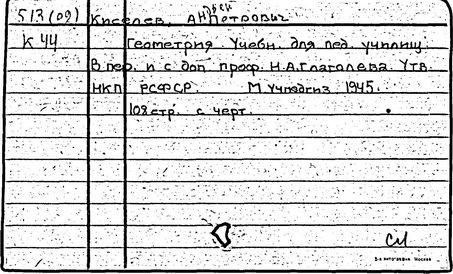 513(09) Киселев, Андрей Петрович
К 44 Геометрия Учебн. для пед. училищ.
В пер. и с доп проф. Н.А.Глаголева. Утв.
НКП РСФСР. М Учпедгиз 1945.
108 стр. с черт.